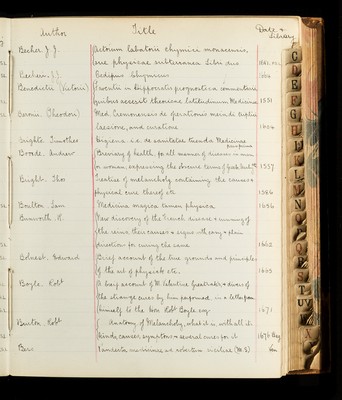 Author Title Date & Library
Becher. J.J. Actorum laboratorii chymici monacensis,
sive physicae subterranea Libri duo 1681
Becheri. J.J. Oedipus Chymicus 1664
Benedictis (Victoris) Faventini in Hippocratis prognostica commentarii
quibus accessit theoricae latitudinum Medicinae 1551
Boronii (Theodori) Med. Cremonensis de operationis meiendi triplici
laesione, and curatione 1609
Brighte Timothee Hygiena i.e. de sanitate tuenda Medicinae
Boorde. Andrew Breviary of health, for all manner of diseases in man
or woman expressing the obscure terms of 1557
Bright. Thos Treatise of melancholy containing the causes &
physical cure thereof etc 1586
Boulton. Sam Medicina magica tamen physica 1656
Bunworth. R. New discovery of the French disease & running of
the reins, their causes & signs with easy & plain
direction for curing the same 1662
Bolnest. Edward Brief account of the true grounds and principles
of the art of physick etc. 1665
Boyle. Robt A brief account of Mr Valentine Greatraks, & divers of
the strange cures by him performed, in a letter from
himself to the Hon Robt Boyle esq 1671
Burton. Robt Anatomy of Melancholy, what it is, with all its
kinds, causes, symptoms & several cures for it 1676
C
D
E
F
G
H
I
L
M
N
O
P
Q
R
S
T
U